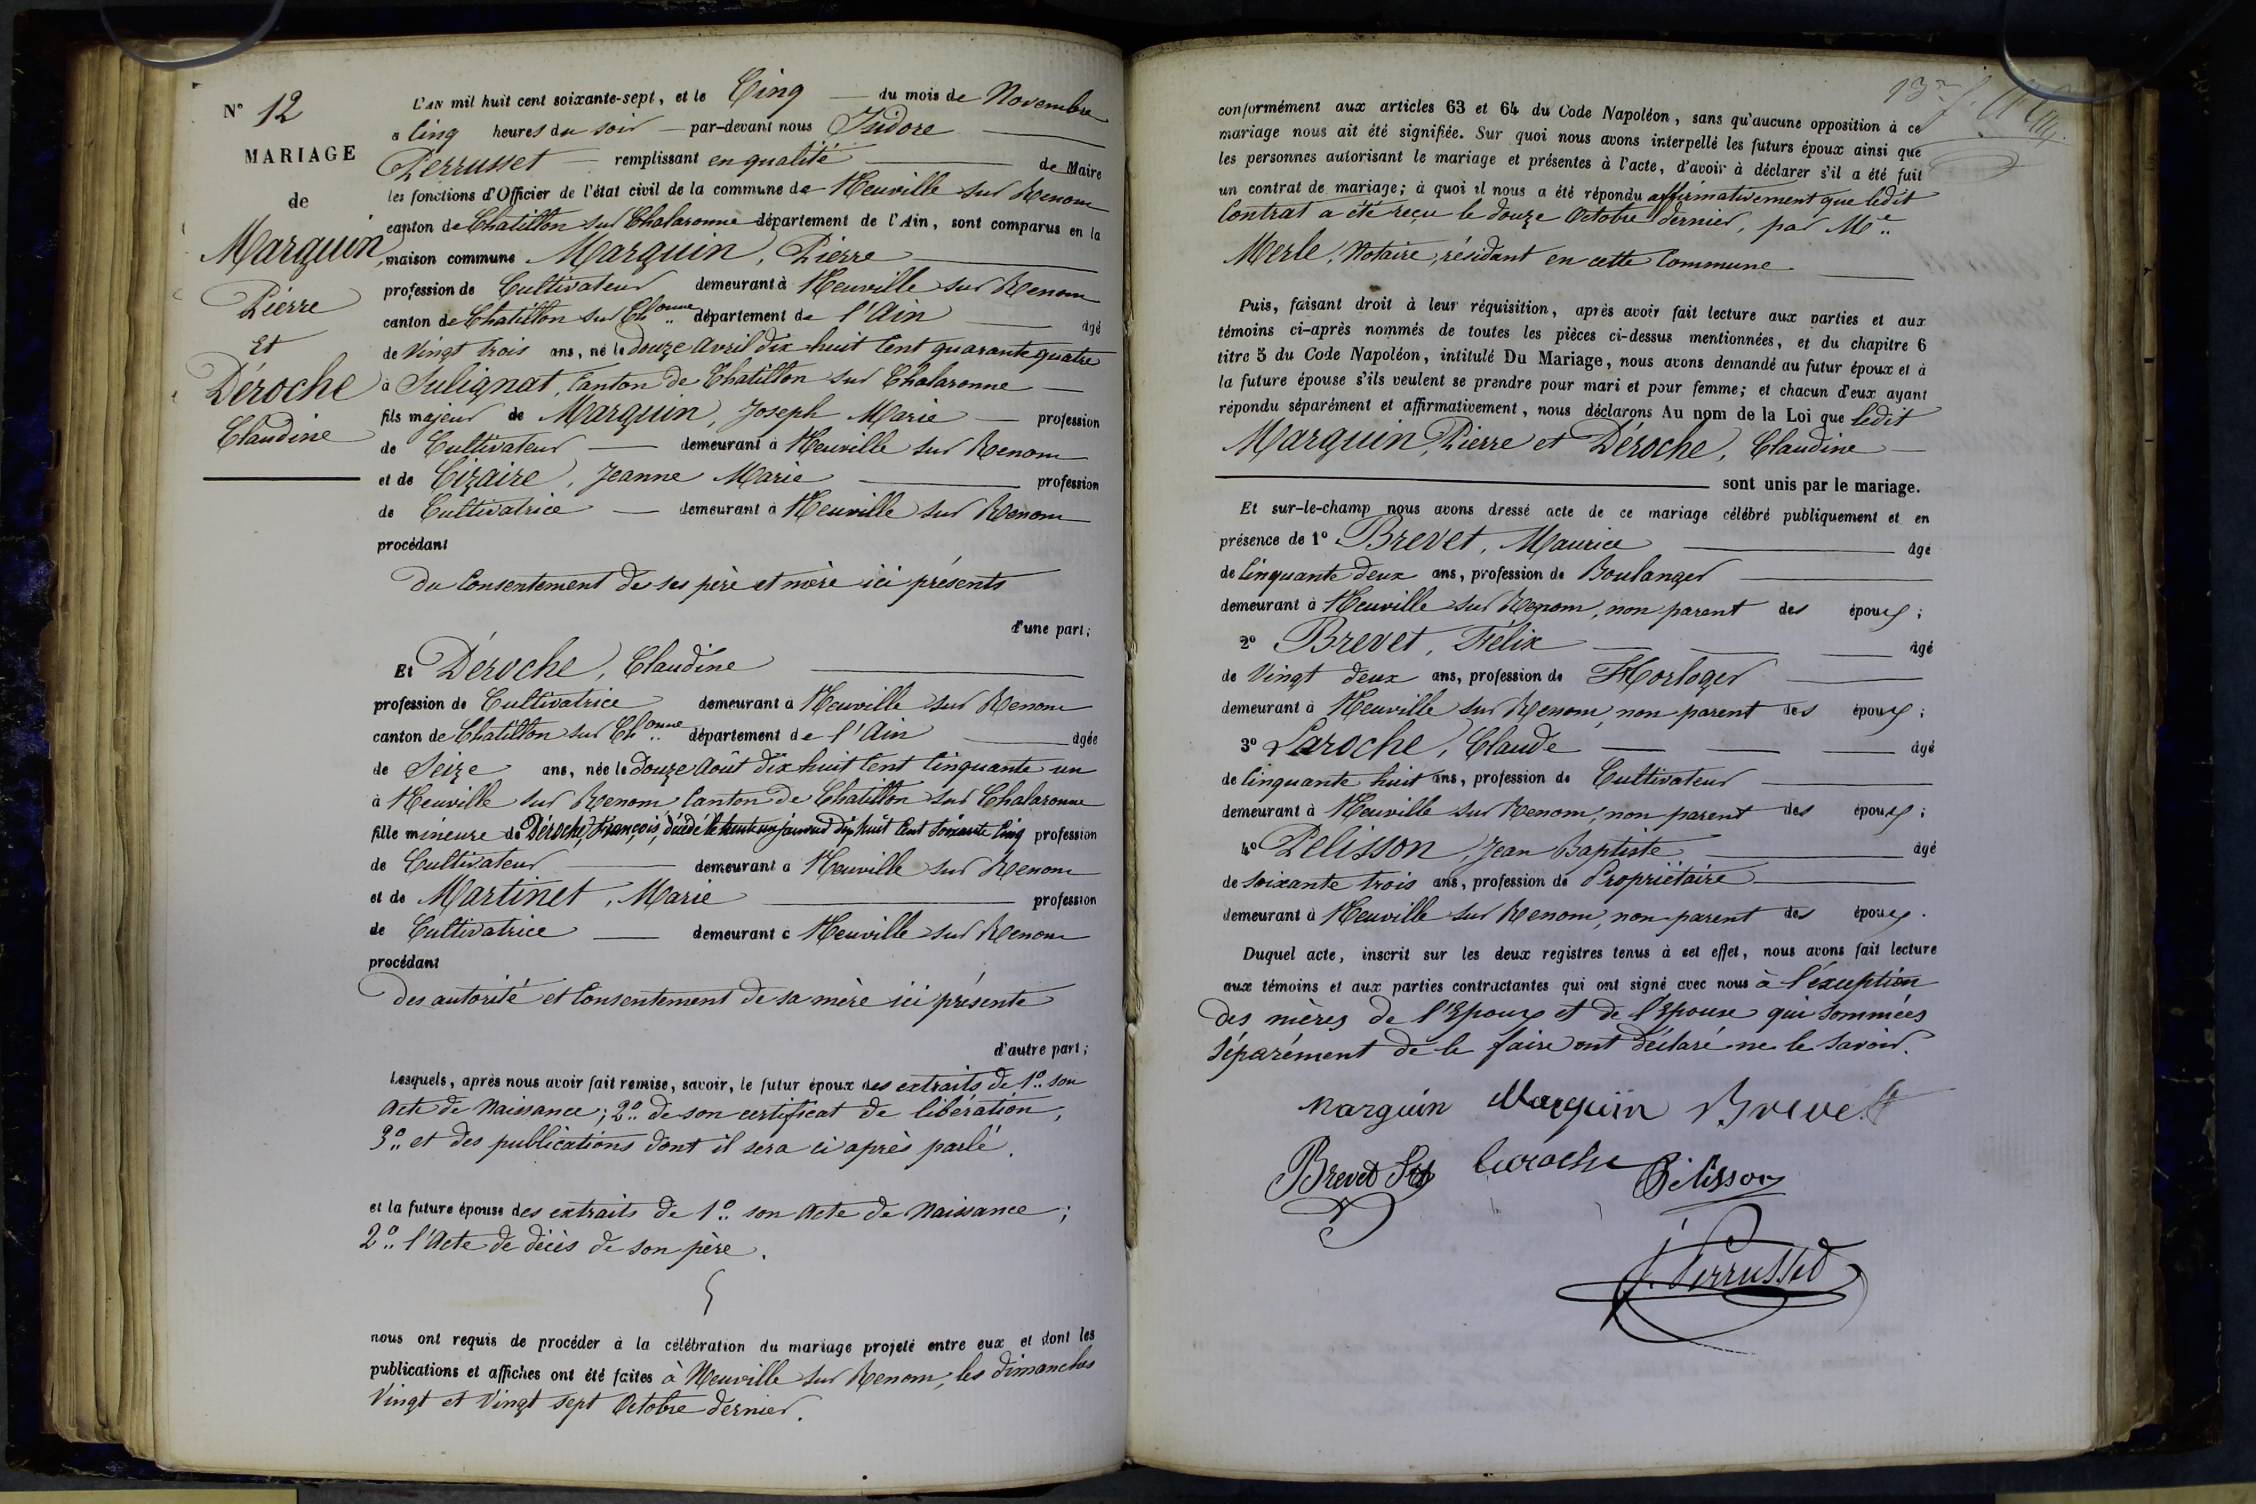 N° 12
MARIAGE
de
Marguin
Pierre
et
Déroche
Claudine
L'AN mil huit cent soixante-sept, et le Cinq du mois de Novembre
a Cinq heures du soir par-devant nous Isidore
Perrusset remplissant en qualité de Maire
les fonctions d'Officier de l'état civil de la commune de Neuville sur Renom
canton de Chatillon sur Chalaronne département de l'Ain, sont comparus en la
maison commune Marguin, Pierre
profession de Cultivateur demeurant à Neuville sur Renom
canton de Chatillon sur Ch onne département de l'Ain âgé
de Vingt trois ans, né le Douze Avril dix huit Cent quarante quatre
à Sulignat, Canton de Chatillon sur Chalaronne
fils majeur de Marguin, Joseph Marie profession
de Cultivateur demeurant à Neuville sur Renom
et de Cizaire, Jeanne Marie profession
de Cultivatrice demeurant à Neuville sur Renom
procédant
du Consentement de ses père et mère ici présents
d'une part;
Et Déroche, Claudine
profession de Cultivatrice demeurant à Neuville sur Renom
canton de Chatillon sur Ch onne département de l'Ain âgée
de Seize ans, née le Douze Août dix huit Cent Cinquante un
à Neuville sur Renom Canton de Chatillon sur Chalaronne
fille mineure de Déroche, François, décédé le trente un janvier dix huit Cent Soixante Cinq profession
de Cultivateur demeurant à Neuville sur Renom
et de Martinet, Marie profession
de Cultivatrice demeurant à Neuville sur Renom
procédant
des autorité et Consentement de sa mère ici présente
d'autre part;
Lesquels, après nous avoir fait remise, savoir, le futur époux des extraits de 1° son
Acte de Naissance; 2° de son certificat de libération;
3° et des publications dont il sera ci après parlé.
et la future épouse des extraits de 1° son Acte de Naissance;
2° l'Acte de décès de son père.
nous ont requis de procéder à la célébration du mariage projeté entre eux et dont les
publications et affiches ont été faites à Neuville sur Renom, les dimanches
Vingt et Vingt sept Octobre dernier.
conformément aux articles 63 et 64 du Code Napoléon, sans qu'aucune opposition à ce
mariage nous ait été signifiée. Sur quoi nous avons interpellé les futurs époux ainsi que
les personnes autorisant le mariage et présentes à l'acte, d'avoir à déclarer s'il a été fait
un contrat de mariage; à quoi il nous a été répondu affirmativement que ledit
Contrat a été reçu le douze Octobre dernier, par Me
Merle, Notaire, résidant en cette Commune
Puis, faisant droit à leur réquisition, après avoir fait lecture aux parties et aux
témoins ci-après nommés de toutes les pièces ci-dessus mentionnées, et du chapitre 6
titre 5 du Code Napoléon, intitulé Du Mariage, nous avons demandé au futur époux et à
la future épouse s'ils veulent se prendre pour mari et pour femme; et chacun d'eux ayant
répondu séparément et affirmativement, nous déclarons Au nom de la Loi que ledit
Marguin, Pierre et Déroche, Claudine
sont unis par le mariage.
Et sur-le-champ nous avons dressé acte de ce mariage célébré publiquement et en
présence de 1° Brevet, Maurice âgé
de Cinquante deux ans, profession de Boulanger
demeurant à Neuville sur Renom, non parent des époux;
2° Brevet, Félix âgé
de Vingt deux ans, profession de Horloger
demeurant à Neuville sur Renom, non parent des époux;
3° Laroche, Claude âgé
de Cinquante huit ans, profession de Cultivateur
demeurant à Neuville sur Renom, non parent des époux;
4° Pelisson, Jean Baptiste âgé
de soixante trois ans, profession de Propriétaire
demeurant à Neuville sur Renom, non parent des époux.
Duquel acte, inscrit sur les deux registres tenus à cet effet, nous avons fait lecture
aux témoins et aux parties contractantes qui ont signé avec nous à l'éxception
des mères de l'Epoux et de l'Epouse qui sommées
séparément de le faire ont déclaré ne le savoir.
Marguin Marguin Brevet
Brevet Laroche Pélisson
Perrusset